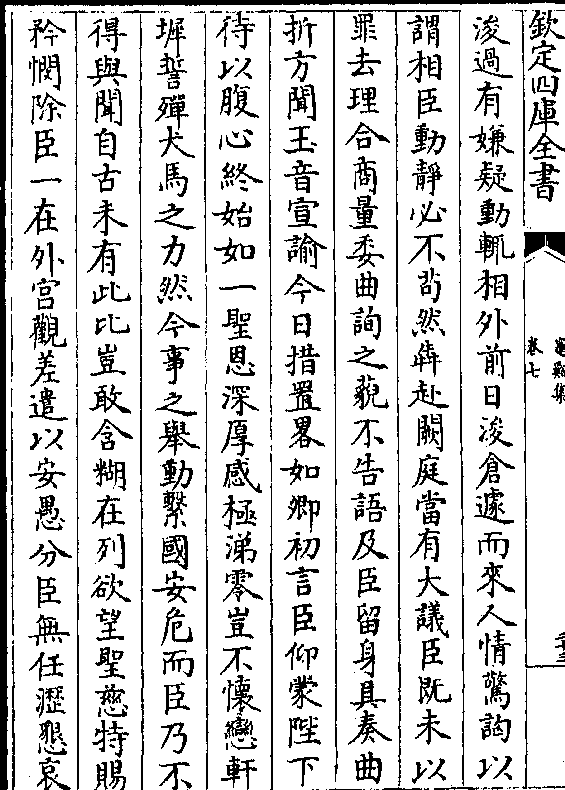 欽定四庫全書
卷七
浚過有嫌疑動輒相外前日浚倉遽而來人情驚詢以
謂相臣動靜必不茍然犇赴闕庭當有大議臣既未以
罪去理合商量委曲詢之藐不告語及臣留身具奏曲
折方聞玉音宣諭今日措置畧如卿初言臣仰蒙陛下
待以腹心終始如一聖恩深厚感極涕零豈不懷戀軒
墀誓殫犬馬之力然今事之舉動繫國安危而臣乃不
得與聞自古未有此比豈敢含糊在列欲望聖慈特賜
矜憫除臣一在外宫觀差遣以安愚分臣無任瀝懇哀